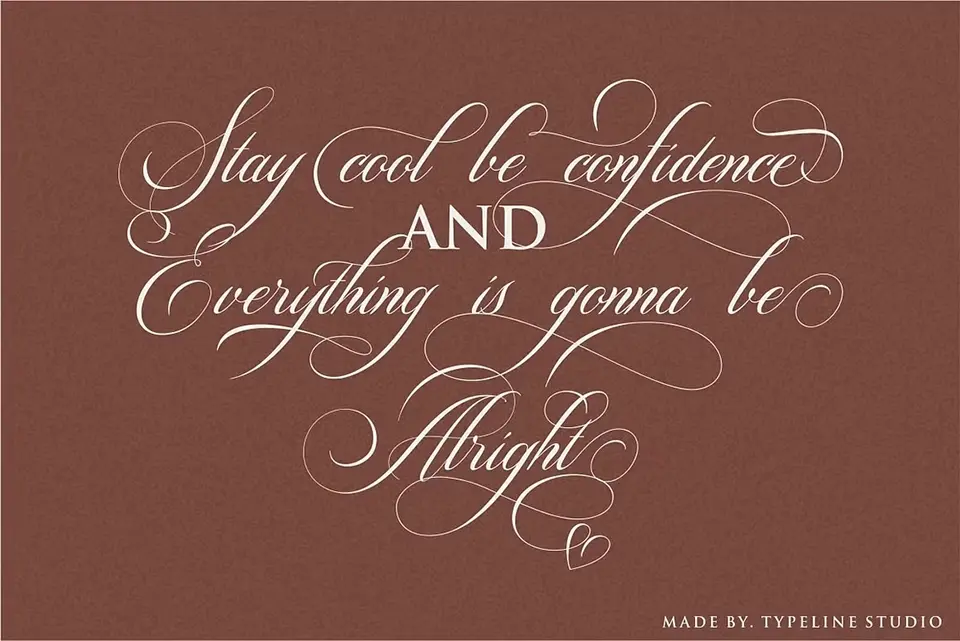 Stay cool be confidence
AND
Everything is gonna be
Alright
MADE BY. TYPELINE STUDIO